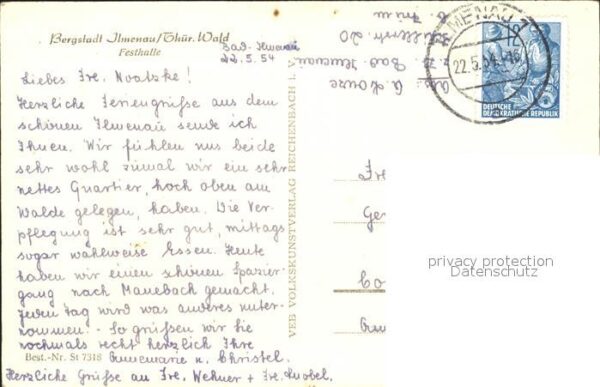 Bergstadt Ilmenau/Thür. Wald
Festhalle
Bad-Ilmenau
22.5.54
Liebes Frl. Noatzke!
Herzliche Feriengrüsse aus dem
schönen Ilmenau sende ich
Ihnen. Wir fühlen uns beide
sehr wohl zumal wir ein sehr
nettes Quartier, hoch oben am
Walde gelegen, haben. Die Ver-
pflegung ist sehr gut, mittags
sogar wahlweise Essen. Heute
haben wir einen schönen Spazier-
gang nach Manebach gemacht.
Jeden Tag wird was anderes unter-
nommen. - So grüßen wir Sie
nochmals recht herzlich Ihre
Annemarie u. Christel.
Best.-Nr. St 7318
Herzliche Grüße an Frl. Wehner + Frl. Knobel.
VEB VOLKSKUNSTVERLAG REICHENBACH i. V.
Abs: A.
z. Zt. Bad Ilmenau
20
b.
ILMENAU 1
22.5.54
12
DEUTSCHE
DEMOKRATISCHE REPUBLIK
privacy protection
Datenschutz